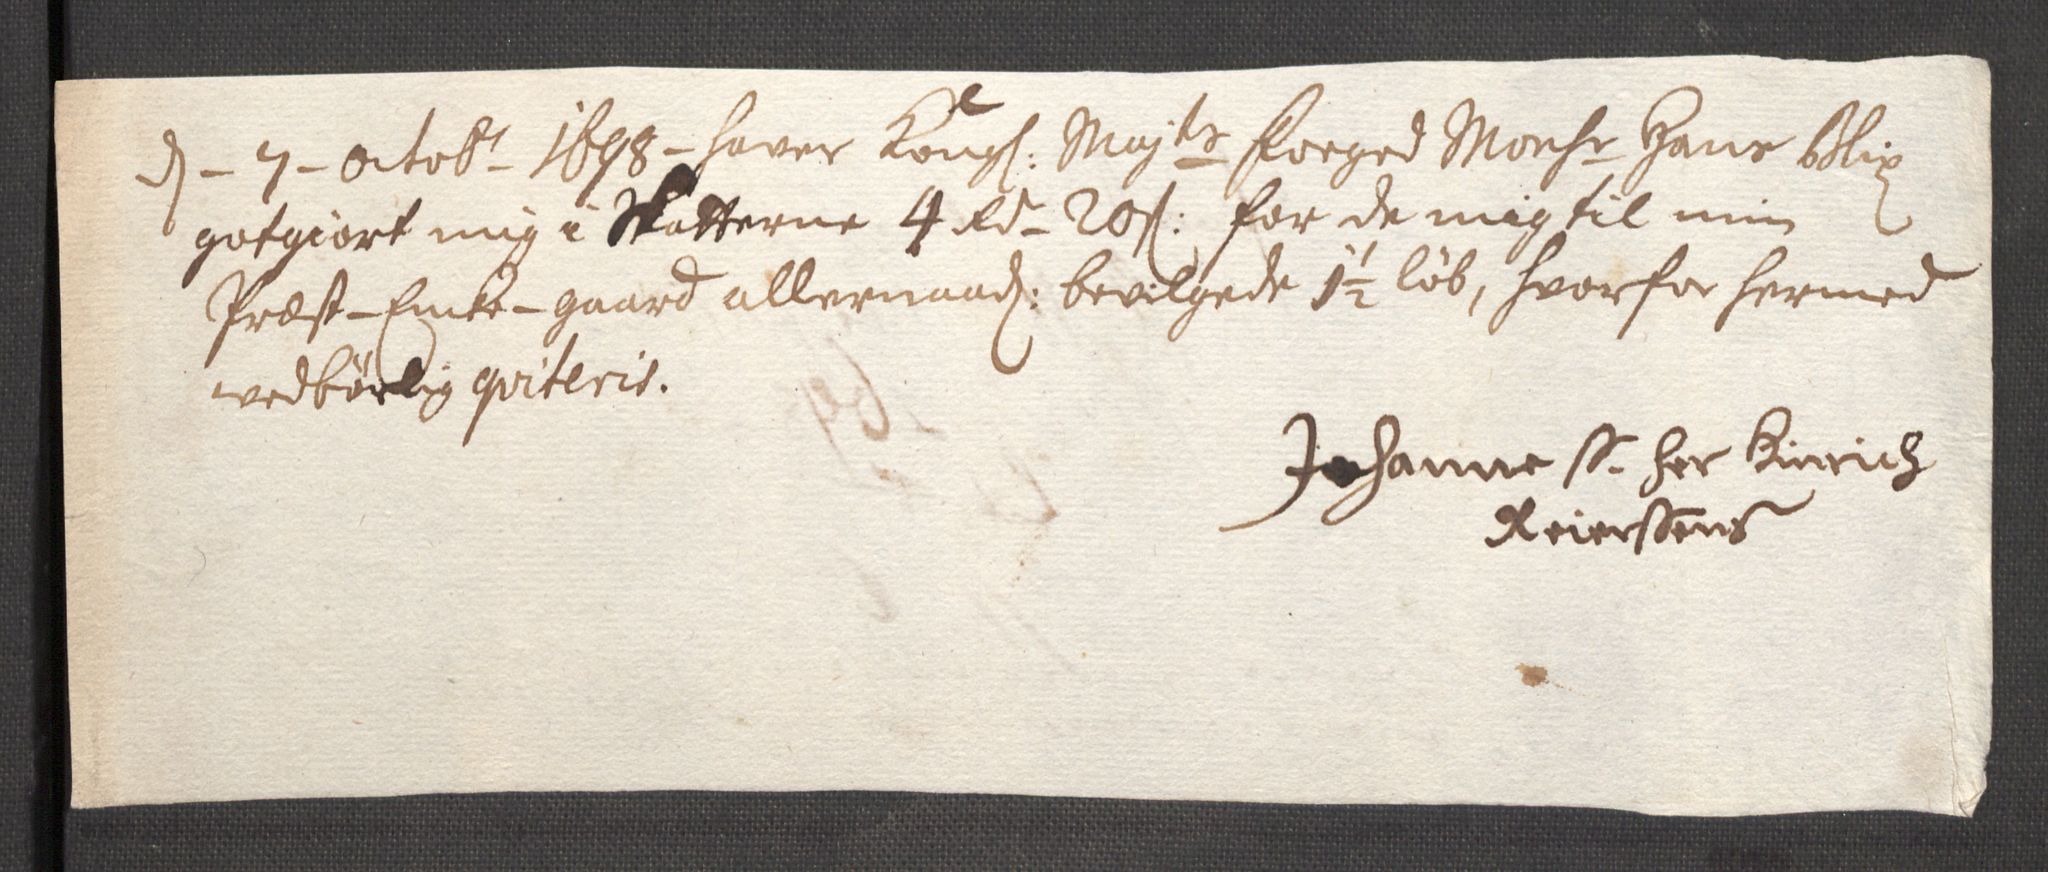 d – 7 – octobr – 1698 – haver Kongl: Majts Foeged Monsr Hans Blix
gotgiort mig i Skatterne 4 Rd – 20 s: for de mig til min
Præst-Encke-gaard allernaad: bevilgede 1½ løb, hvorfor hermed
vedbørlig qviteris.
Johanne S. her Hinrich
Reierssens